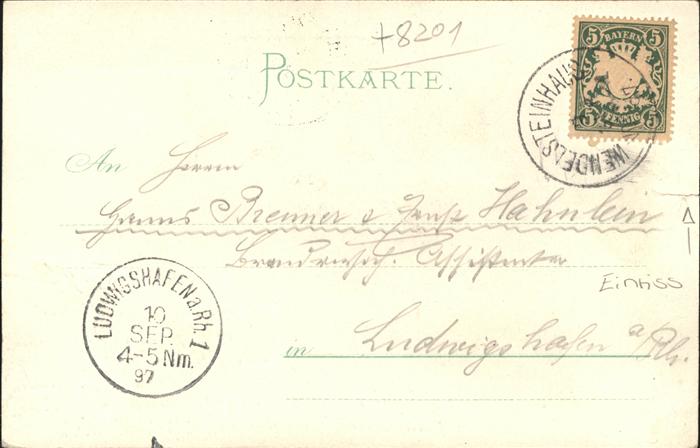 +8201
5 BAYERN 5
5 PFENNIG 5
POSTKARTE.
WENDELSTEINHAUS
An Herrn
Hanns Brenner & Hahnlein
Assistenten
Einriss
in Ludwigshafen a/Rh.
LUDWIGSHAFEN a. Rh. 1
10
SEP.
4-5 Nm.
97